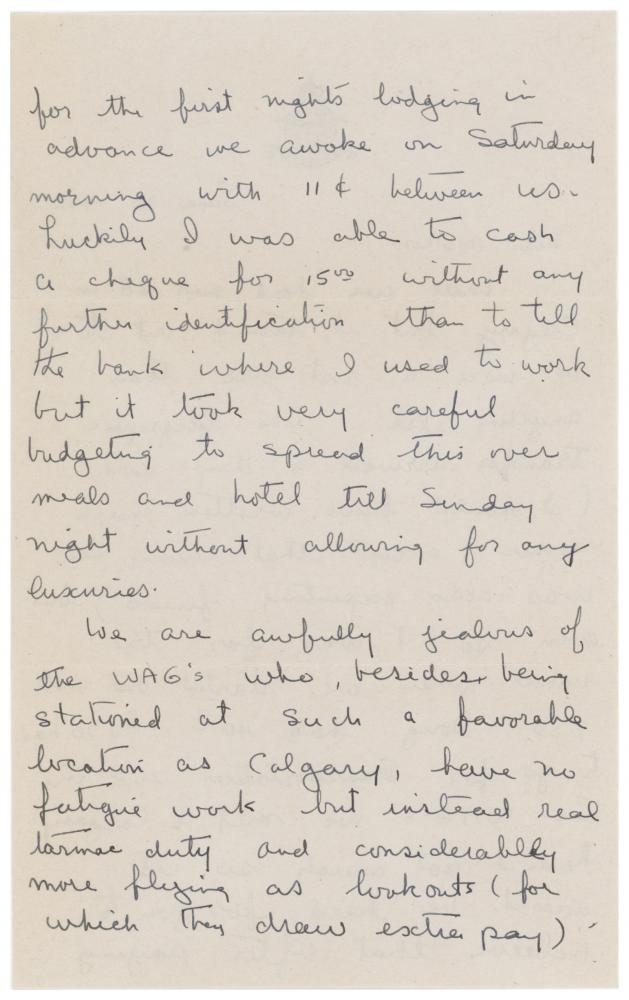 for the first nights lodging in
advance we awoke on Saturday
morning with 11¢ between us.
Luckily I was able to cash
a cheque for 15⁰⁰ without any
further identification than to tell
the bank where I used to work
but it took very careful
budgeting to spread this over
meals and hotel till Sunday
night without allowing for any
luxuries.
We are awfully jealous of
the WAG's who, besides, being
stationed at such a favorable
location as Calgary, have no
fatigue work but instead real
tarmac duty and considerablley
more flying as lookouts (for
which they draw extra pay)